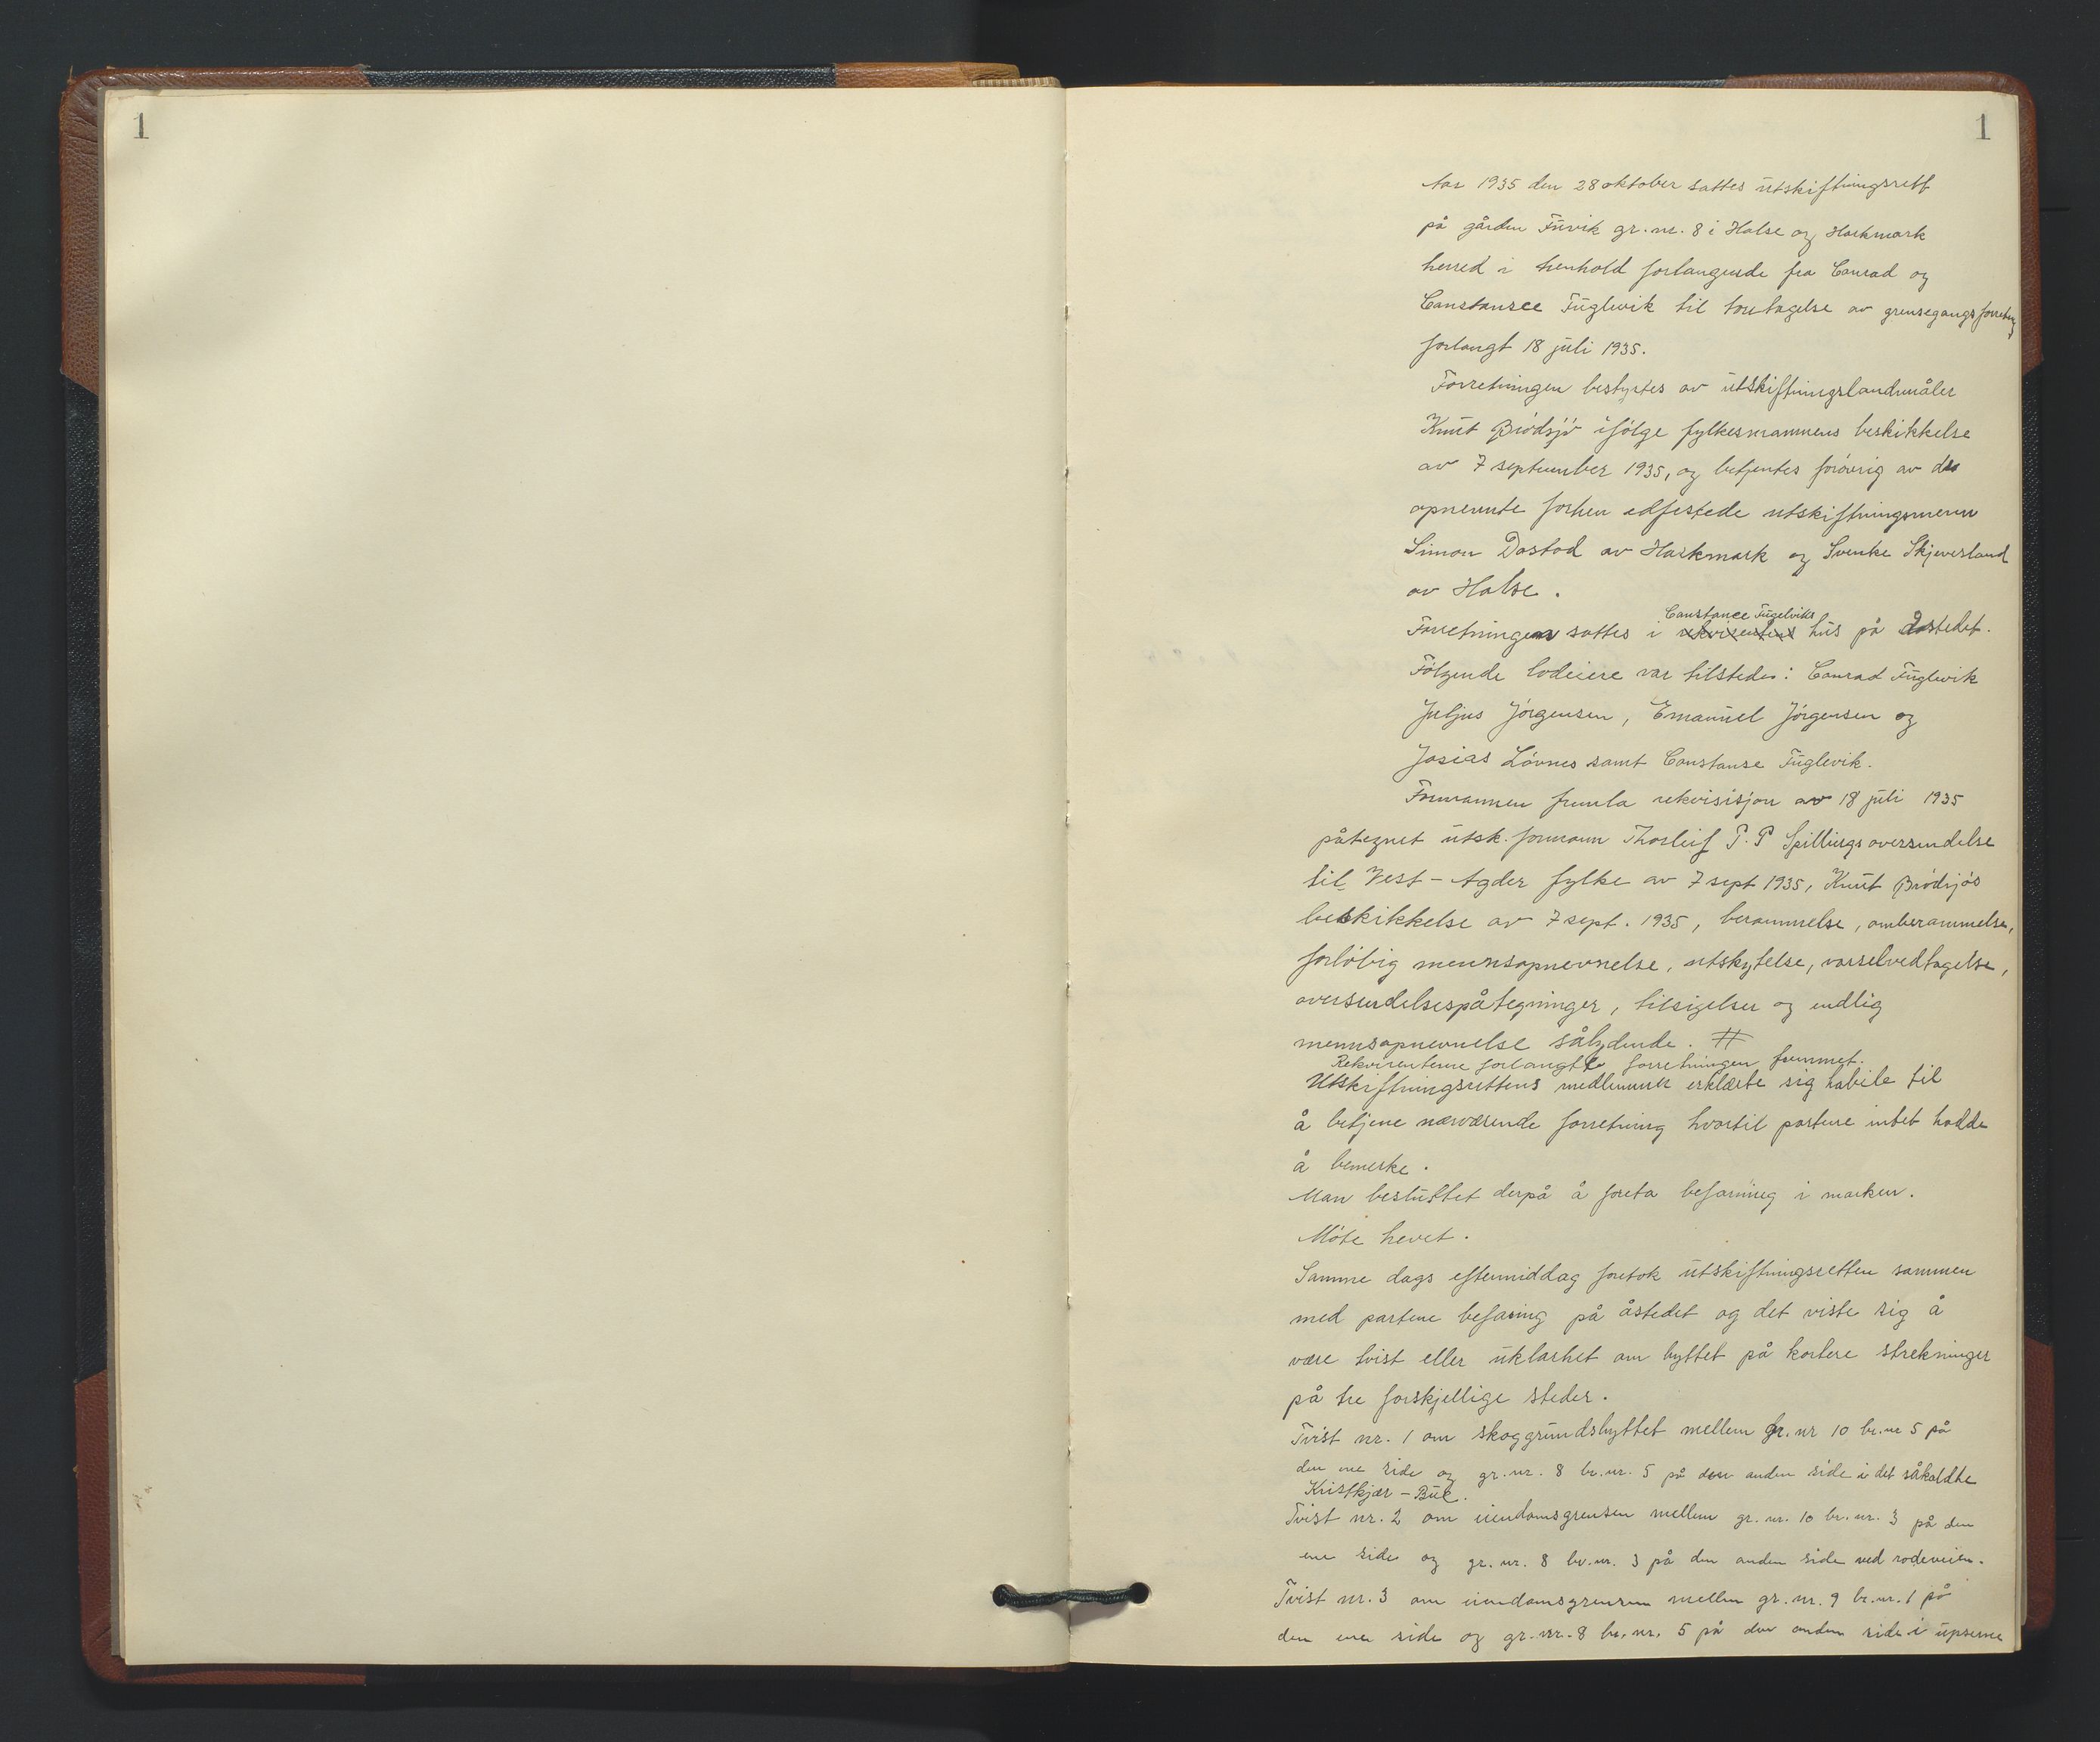 1
1
Aar 1935 den 28 oktober sattes utskiftningsrett
på gården Fuvik gr. nr. 8 i Halse og Harkmark
herred i henhold forlangende fra Conrad og
Constansee Fuglevik til foretagelse av grensegangsforretng
forlangt 18 juli 1935.
Forretningen bestyrtes av utskiftningslandmåler
Knut Brødsjø ifølge fylkesmannens beskikkelse
av 7 september 1935, og betjentes forøvrig av de
opnevnte forhen edfestede utskiftningsmenn
Simon Dastad av Harkmark og Svenke Skjeversland
av Halse.
Constance Fugelviks
Forretningen sattes i rekvirentens hus på åstedet.
Følgende lodeiere var tilstede: Conrad Fuglevik
Juljus Jørgensen, Emanuel Jørgensen og
Josias Løvnes samt Constanse Fuglevik.
Formannen fremla rekvisisjon av 18 juli 1935
påtegnet utsk. formann Thorleif P. P Spillings oversendelse
til Vest-Agder fylke av 7 sept 1935, Knut Brødsjøs
beskikkelse av 7 sept. 1935, berammelse, omberammelse,
forløbig mennsopnevnelse, utskytelse, varselvedtagelse,
oversendelsespåtegninger, tilsigelser og endlig
mennsopnevnelse sålydende. #
Rekvirentene forlangte forretningen fremmet.
Utskiftningsrettens medlemmer erklærte sig habile til
å betjene nærværende forretning hvortil partene intet hadde
å bemerke.
Man besluttet derpå å foreta befaring i marken.
Møte hevet.
Samme dags eftermiddag foretok utskiftningsretten sammen
med partene befaring på åstedet og det viste sig å
være tvist eller uklarhet om byttet på kortere strekninger
på tre forskjellige steder.
Tvist nr. 1 om skoggrundsbyttet mellem gr. nr 10 br. nr 5 på
den ene side og gr. nr. 8 br. nr. 5 på den anden side i det såkaldte
Kristkjær - Buc.
Tvist nr. 2 om eiendomsgrensen mellem gr. nr. 10 br. nr. 3 på den
ene side og gr. nr. 8 br. nr. 3 på den anden side ved rodeveien.
Tvist nr. 3 om eiendomsgrensen mellem gr. nr. 9 br. nr. 1 på
den ene side og gr. nr. 8 br. nr. 5 på den anden side i upserne